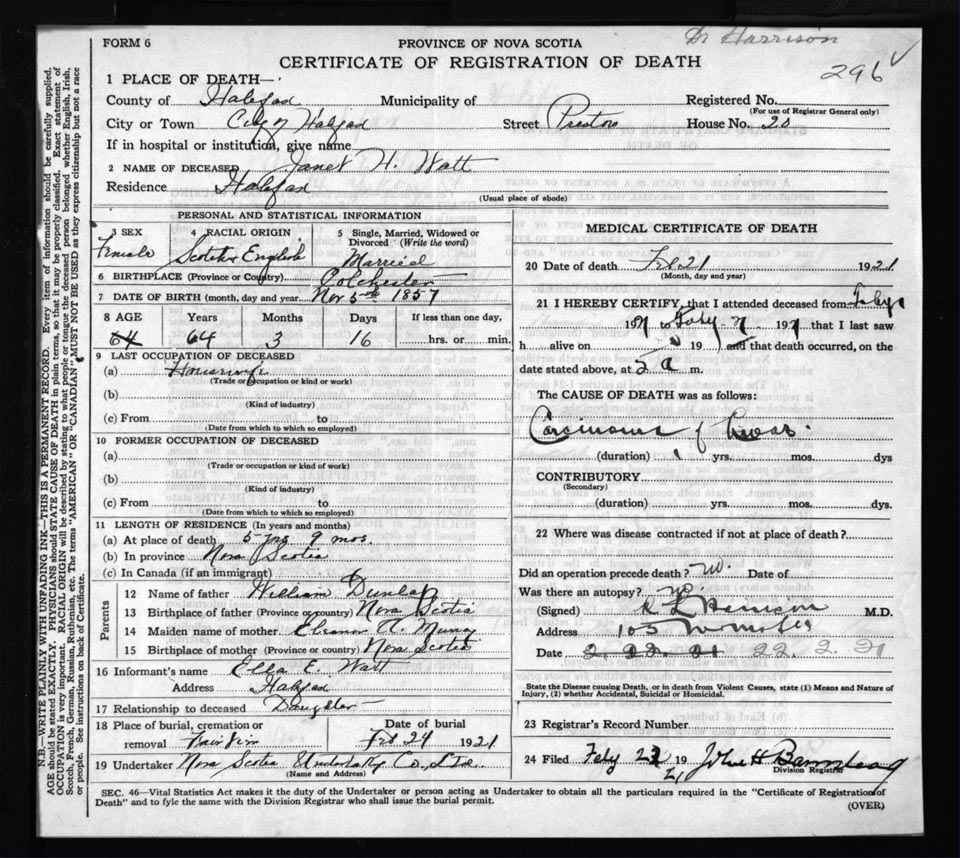 Dr Harrison
296 ✓
FORM 6
PROVINCE OF NOVA SCOTIA
CERTIFICATE OF REGISTRATION OF DEATH
1 PLACE OF DEATH—
County of Halifax Municipality of Registered No.
(For use of Registrar General only)
City or Town City of Halifax Street Preston House No. 20
If in hospital or institution, give name
2 NAME OF DECEASED Janet H. Watt
Residence Halifax
(Usual place of abode)
PERSONAL AND STATISTICAL INFORMATION
3 SEX
Female
4 RACIAL ORIGIN
Scotch & English
5 Single, Married, Widowed or
Divorced (Write the word)
Married
6 BIRTHPLACE (Province or Country) Colchester
7 DATE OF BIRTH (month, day and year) Nov 5th 1857
8 AGE Years Months Days If less than one day,
64 64 3 16 hrs. or min.
9 LAST OCCUPATION OF DECEASED
(a) Housewife
(Trade or occupation or kind or work)
(b)
(Kind of industry)
(c) From to
(Date from which to which so employed)
10 FORMER OCCUPATION OF DECEASED
(a)
(Trade or occupation or kind of work)
(b)
(Kind of industry)
(c) From to
(Date from which to which so employed)
11 LENGTH OF RESIDENCE (In years and months)
(a) At place of death 5 yrs 9 mos.
(b) In province Nova Scotia
(c) In Canada (if an immigrant)
Parents
12 Name of father William Dunlap
13 Birthplace of father (Province or country) Nova Scotia
14 Maiden name of mother
15 Birthplace of mother (Province or country) Nova Scotia
16 Informant's name Ella E. Watt
Address Halifax
17 Relationship to deceased Daughter
18 Place of burial, cremation or Date of burial
removal Feb 24 1921
19 Undertaker Nova Scotia Undertaking Co., Ltd.
(Name and Address)
MEDICAL CERTIFICATE OF DEATH
20 Date of death Feb 21 1921
(Month, day and year)
21 I HEREBY CERTIFY, that I attended deceased from
19 to 19 that I last saw
h alive on 19 and that death occurred, on
date stated above, at 5 a m.
The CAUSE OF DEATH was as follows:
Carcinoma of
(duration) yrs. mos. dys
CONTRIBUTORY
(Secondary)
(duration) yrs. mos. dys.
22 Where was disease contracted if not at place of death?
Did an operation precede death? no. Date of
Was there an autopsy? no.
(Signed) M.D.
Address 105
Date 2 22 21 22. 2. 21
State the Disease causing Death, or in death from Violent Causes, state (1) Means and Nature of
Injury, (2) whether Accidental, Suicidal or Homicidal.
23 Registrar's Record Number
24 Filed Feby 23 1921 John H
Division Registrar
SEC. 46—Vital Statistics Act makes it the duty of the Undertaker or person acting as Undertaker to obtain all the particulars required in the "Certificate of Registration of
Death" and to fyle the same with the Division Registrar who shall issue the burial permit.
(OVER)
N.B.—WRITE PLAINLY WITH UNFADING INK—THIS IS A PERMANENT RECORD. Every item of information should be carefully supplied.
AGE should be stated EXACTLY. PHYSICIANS should STATE CAUSE OF DEATH in plain terms, so that it may be properly classified. Exact statement of
OCCUPATION is very important. RACIAL ORIGIN will be described by stating to what people or tongue the deceased person belonged whether English, Irish,
Scotch, French, German, Russian, Ruthenian, etc. The terms "AMERICAN" OR "CANADIAN" MUST NOT BE USED as they express citizenship but not a race
or people. See instructions on back of Certificate.